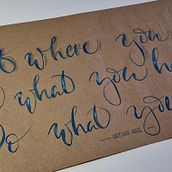 where you
what you
Do what you
ARTHUR ASHE